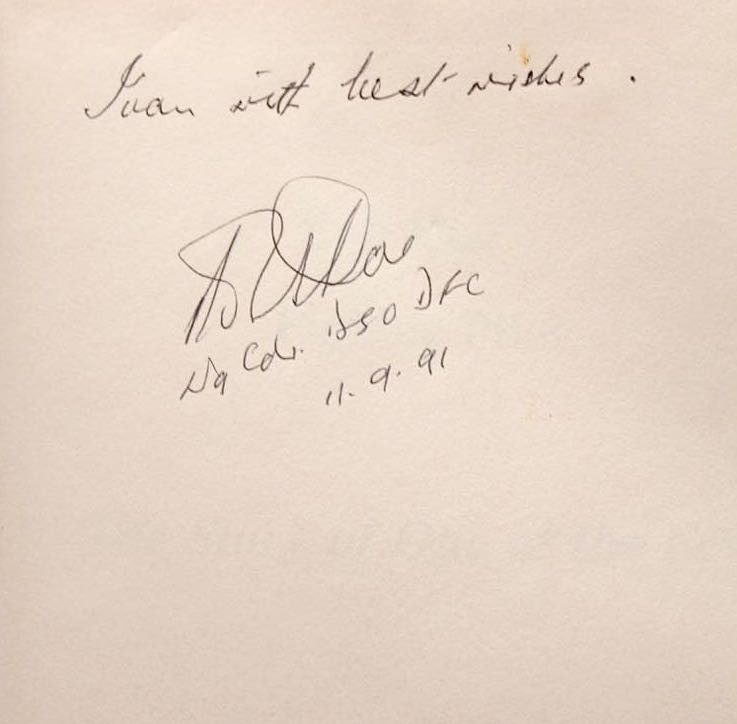 Ivan with best wishes.
Wg Cdr. DSO DFC
11.9.91